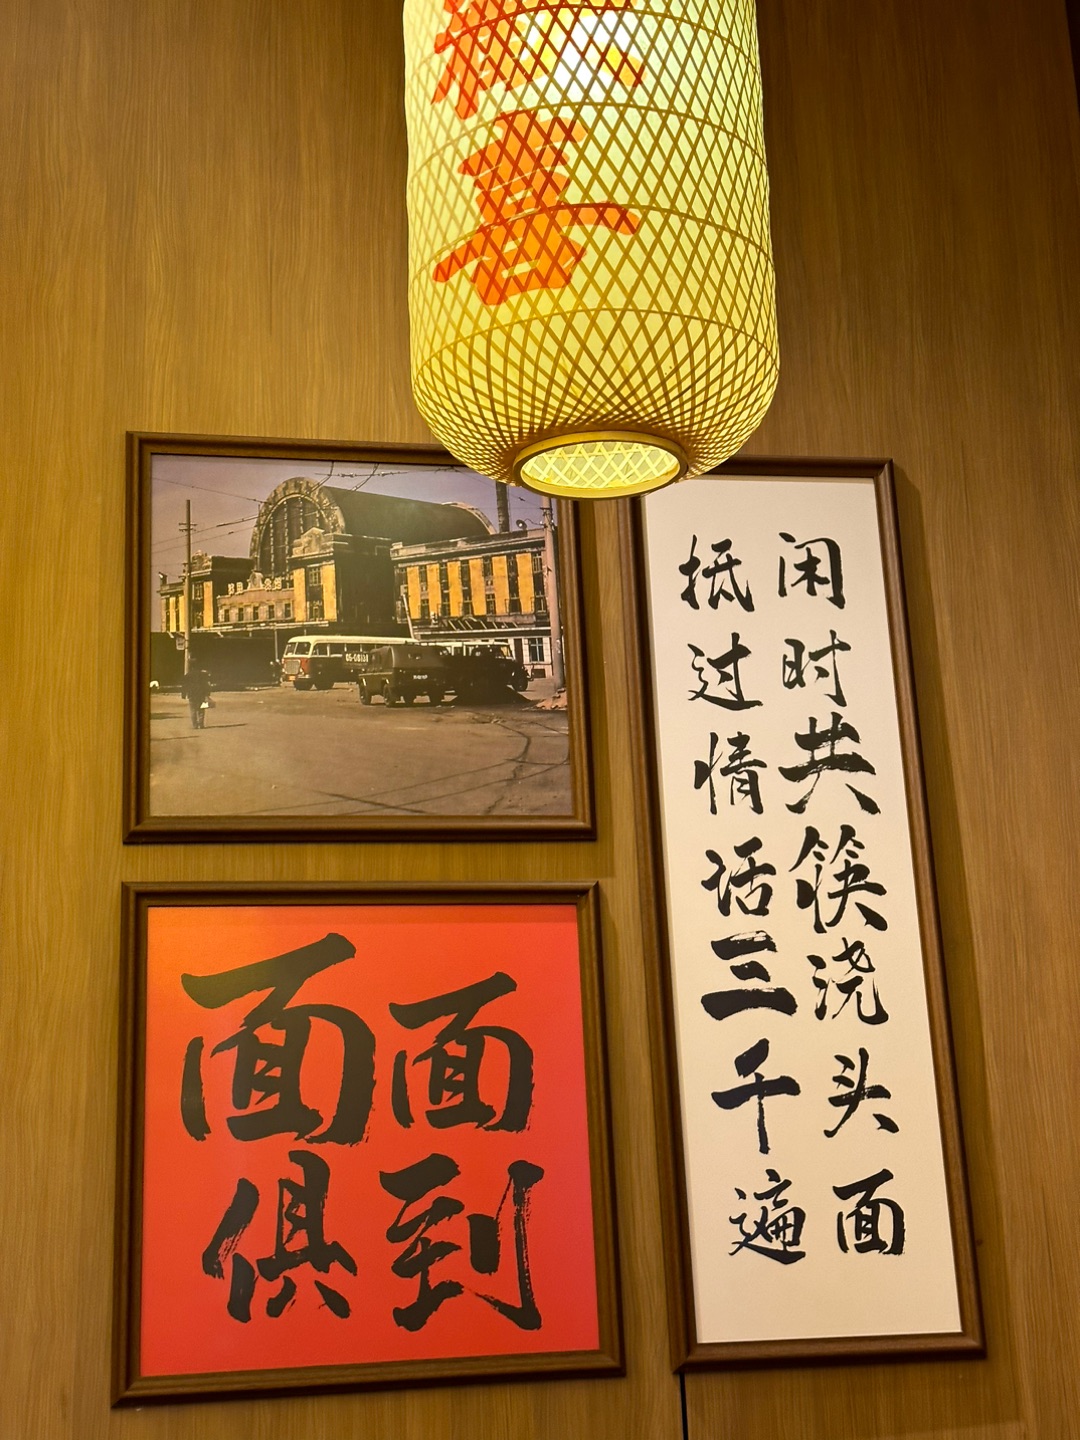 喜
闲时共筷浇头面
抵过情话三千遍
面面
俱到
05-08131